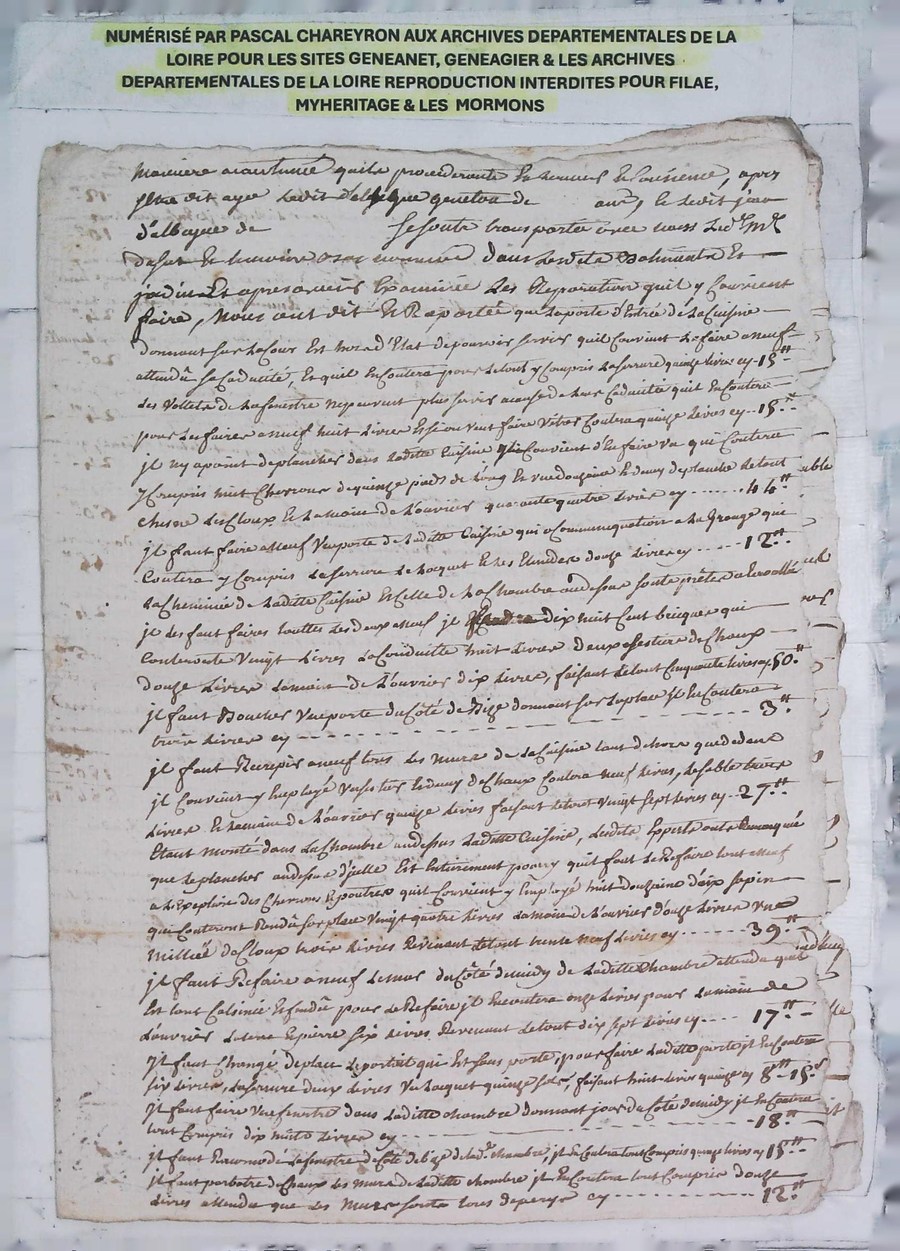 NUMÉRISÉ PAR PASCAL CHAREYRON AUX ARCHIVES DEPARTEMENTALES DE LA
LOIRE POUR LES SITES GENEANET, GENEAGIER & LES ARCHIVES
DEPARTEMENTALES DE LA LOIRE REPRODUCTION INTERDITES POUR FILAE,
MYHERITAGE & LES MORMONS
maniere accoutumé quils procederont en honneur et Consience, apres
dit age de ans, le dit jean
de Se sont transportée avec nous
dans Batiments Et
jardin Et apres avoir Examinée Les Reparation quil y Convient
faire, Nous ont dit et Raportée que La porte d'Entrée de La Cuisine
donnant sur La Cour Est hors d'Etat de pouvoir servir quil Convient La faire a neuf
attendu sa Caducité, Et quil En Coutera pour Le tout y Compris La serrure quinze livres cy - 15.tt
des Vollets de La fenestre ne peuvent plus servir a cause de Leur Caducité quil En Coutera
pour Les faire a neuf huit Livres Coutera quinze Livres cy - 15.tt
jl ny a point de plancher dans Laditte Cuisine Convient d'En faire un qui Coutera
y Compris huit Chevrons de quinze pieds de Long Et une douzaine Et demy de planche Le tout
chesne Les Cloux Et La main de L'ouvrier quarante quatre Livres cy ...... 44.tt
jl faut faire a Neuf Une porte de Laditte Cuisine qui a Communiquation a La Grange qui
Coutera y Compris La serrure Le Loquet Et Les douze Livres cy ..... 12.tt
La Cheminée de Laditte Cuisine Et Celle de La Chambre au dessus sont prêtes a
jl Les faut faire touttes Les deux a neuf jl dix huit Cent briques qui
Couteronts Vingt Livres La Conduitte huit Livres deux sestiers de Chaux
douze Livres La main de L'ouvrier dix Livres, faisant Le tout Cinquante Livres cy 50.tt
jl faut Boucher Une porte du Côté de Bize donnant sur La place jl En Coutera
trois Livres cy - - - - - 3.tt
jl faut Recrepir a neuf tous Les murs de La Cuisine tant dehors que dedans
jl Convient y Employé Un sestier Et demy de Chaux Coutera neuf Livres, Le sable trois
Livres Et La main de L'ouvrier quinze Livres faisant Le tout Vingt sept Livres cy - 27.tt
Etant monté dans La Chambre au dessus Laditte Cuisine, Experts ont Remarquée
que Le plancher au dessus d'jcelle Est Entierement poury quil faut Le Refaire tout a neuf
a L'Exeption des Chevrons Et poutres quil Convient y Employé huit douzaine d'aix sapin
qui Couteront Rendu sur place Vingt quatre Livres La main de L'ouvrier douze Livres Une
millier de Cloux trois Livres Revenant Le tout trente neuf Livres cy ...... 39.tt
jl faut Refaire a neuf Le mur du Côté de midy de Laditte Chambre attendu quil
Est tout Calsinée Et fendu pour Le Refaire jl En coutera onze Livres pour La main de
L'ouvrier La terre Et pierre six Livres Revenant Le tout dix sept Livres cy .... 17.tt
jl faut Changé de place Le portail qui Est sans porte, pour faire Laditte porte jl En Coutera
six Livres, La serrure deux Livres Un Loquet quinze sols, faisant huit Livres quinze cy 8tt-15s
jl faut faire Une fenestre dans Laditte chambre donnant jour du Côté de midy jl En Coutera
tout Compris dix huit Livres cy - - - - 18.tt
jl faut Racomodé La fenestre du Côté de bize de lad. chambre, jl En Coutera tout Compris quinze Livres cy 15.tt
jl faut de Chaux Les murs de Laditte Chambre jl En Coutera tout Compris douze
Livres attendu que Les Murs sont cy - - - - 12.tt